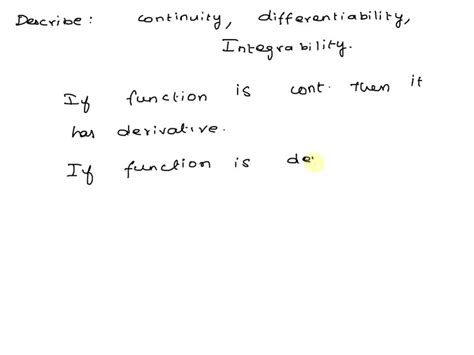 Describe: continuity, differentiability,
Integrability.
If function is cont. then it
has derivative.
If function is de